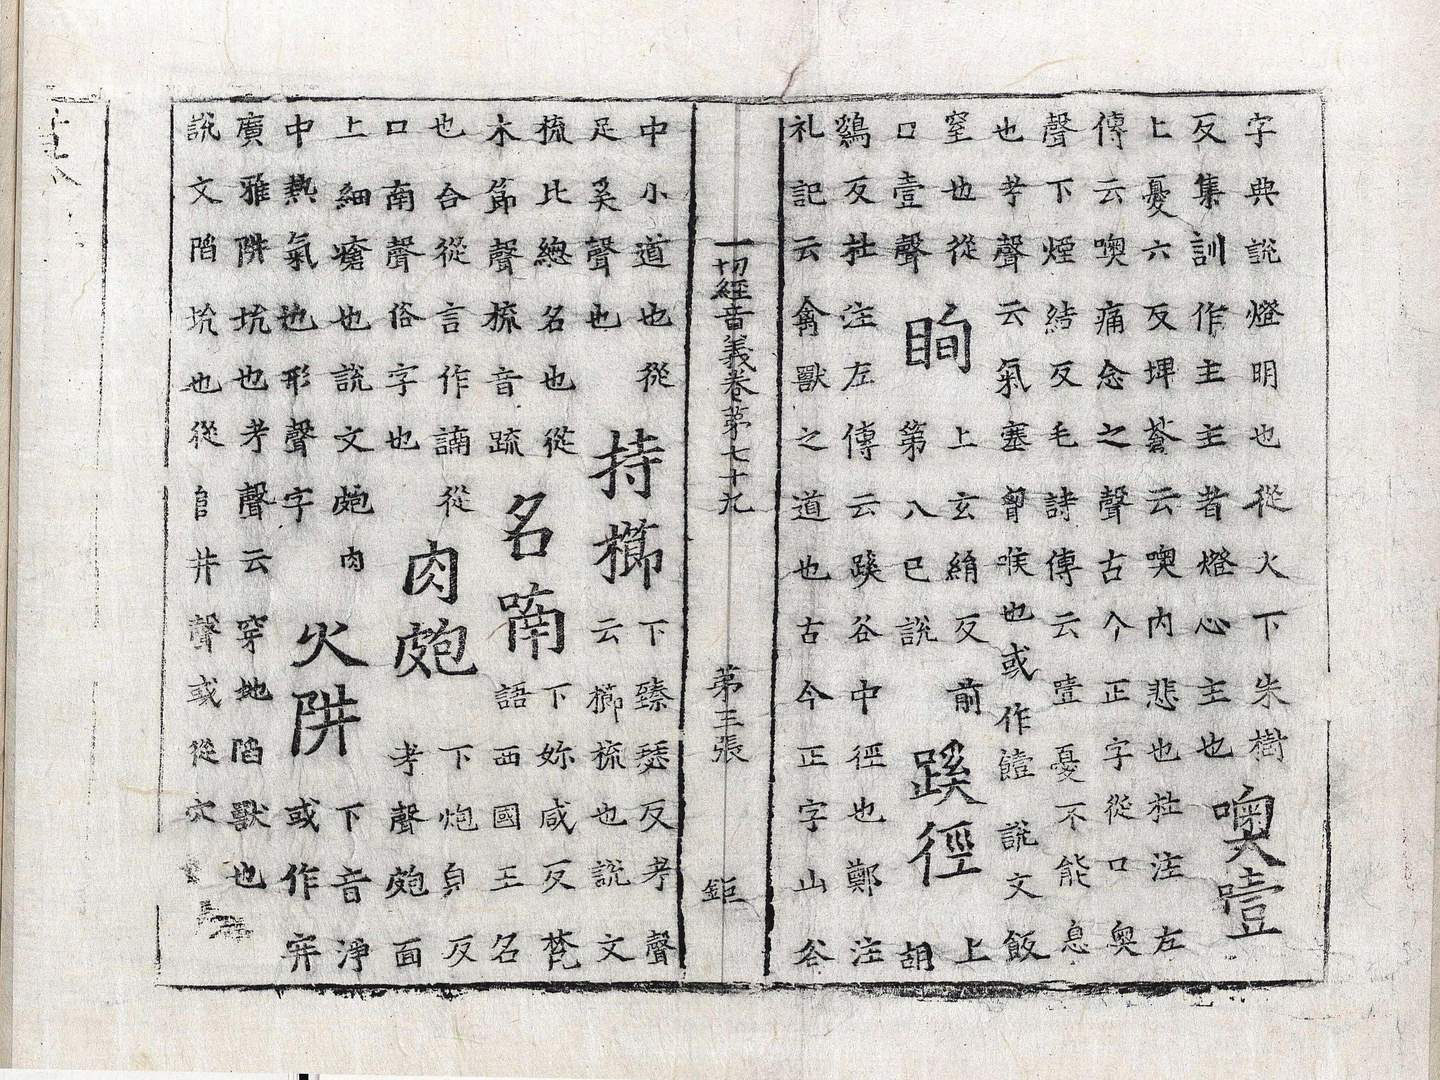 字典說燈明也從火下朱樹
反集訓作主主者燈心主也
噢壹
上憂六反埤蒼云噢內悲也杜注左
傳云噢痛念之聲古今正字從口奧
聲下煙結反毛詩傳云噎憂不能息
也考聲云氣塞胷喉也或作饐說文飯
窒也從
口壹聲
眴
上玄絹反前
第八已說
蹊徑
上
胡
鷄反杜注左傳云蹊谷中徑也鄭注
礼記云禽獸之道也古今正字山谷
一切經音義卷苐七十九 苐三張 鉅
中小道也從
足奚聲也
持櫛
下臻瑟反考聲
云櫛梳也說文
梳比緫名也從
木節聲梳音疏
名喃
下妳咸反梵
語西國王名
也合從言作諵從
口南聲俗字也
肉皰
下炮皃反
考聲皰面
上細瘡也說文皰肉
中熱氣也形聲字
火阱
下音淨
或作穽
廣雅阱坑也考聲云穿地陷獸也
說文陷坑也從𨸏井聲或從穴